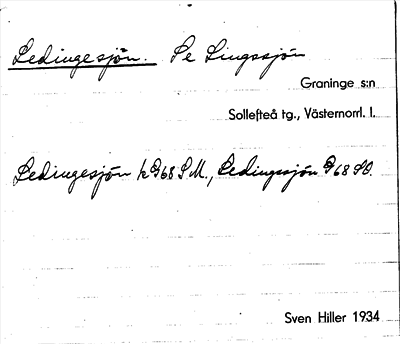 Ledingesjön. Se Lingssjön
Graninge s:n
Sollefteå tg., Västernorrl. l.
Ledingesjön k G68 SM., Ledingsjön G68 SO.
Sven Hiller 1934